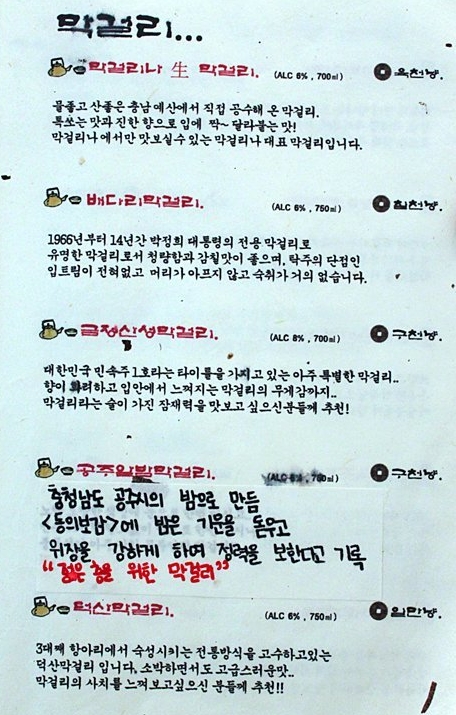 막걸리...
막걸리나 生 막걸리. (ALC 6% , 700ml) 육천냥.
물좋고 산좋은 충남 예산에서 직접 공수해 온 막걸리.
톡쏘는 맛과 진한 향으로 입에 짝~ 달라붙는 맛!
막걸리나 에서만 맛보실수 있는 막걸리나 대표 막걸리입니다.
배다리막걸리. (ALC 6% , 750ml) 칠천냥.
1966년부터 14년간 박정희 대통령의 전용 막걸리로
유명한 막걸리로서 청량함과 감칠맛이 좋으며, 탁주의 단점인
입트림이 전혀없고 머리가 아프지 않고 숙취가 거의 없습니다.
금정산생막걸리. (ALC 8% , 700ml) 구천냥.
대한민국 민속주 1호라는 타이틀을 가지고 있는 아주 특별한 막걸리..
향이 화려하고 입안에서 느껴지는 막걸리의 무게감까지..
막걸리라는 술이 가진 잠재력을 맛보고 싶으신분들께 추천!
공주알밤막걸리. (ALC 6% , 750ml) 구천냥.
충청남도 공주시의 밤으로 만듬
<동의보감>에 밤은 기운을 돋우고
위장을 강하게 하며 정력을 보한다고 기록
"젊은 층을 위한 막걸리"
덕산막걸리. (ALC 6% , 750ml) 일만냥.
3대째 항아리에서 숙성시키는 전통방식을 고수하고있는
덕산막걸리 입니다, 소박하면서도 고급스러운맛..
막걸리의 사치를 느껴보고싶으신 분들께 추천!!